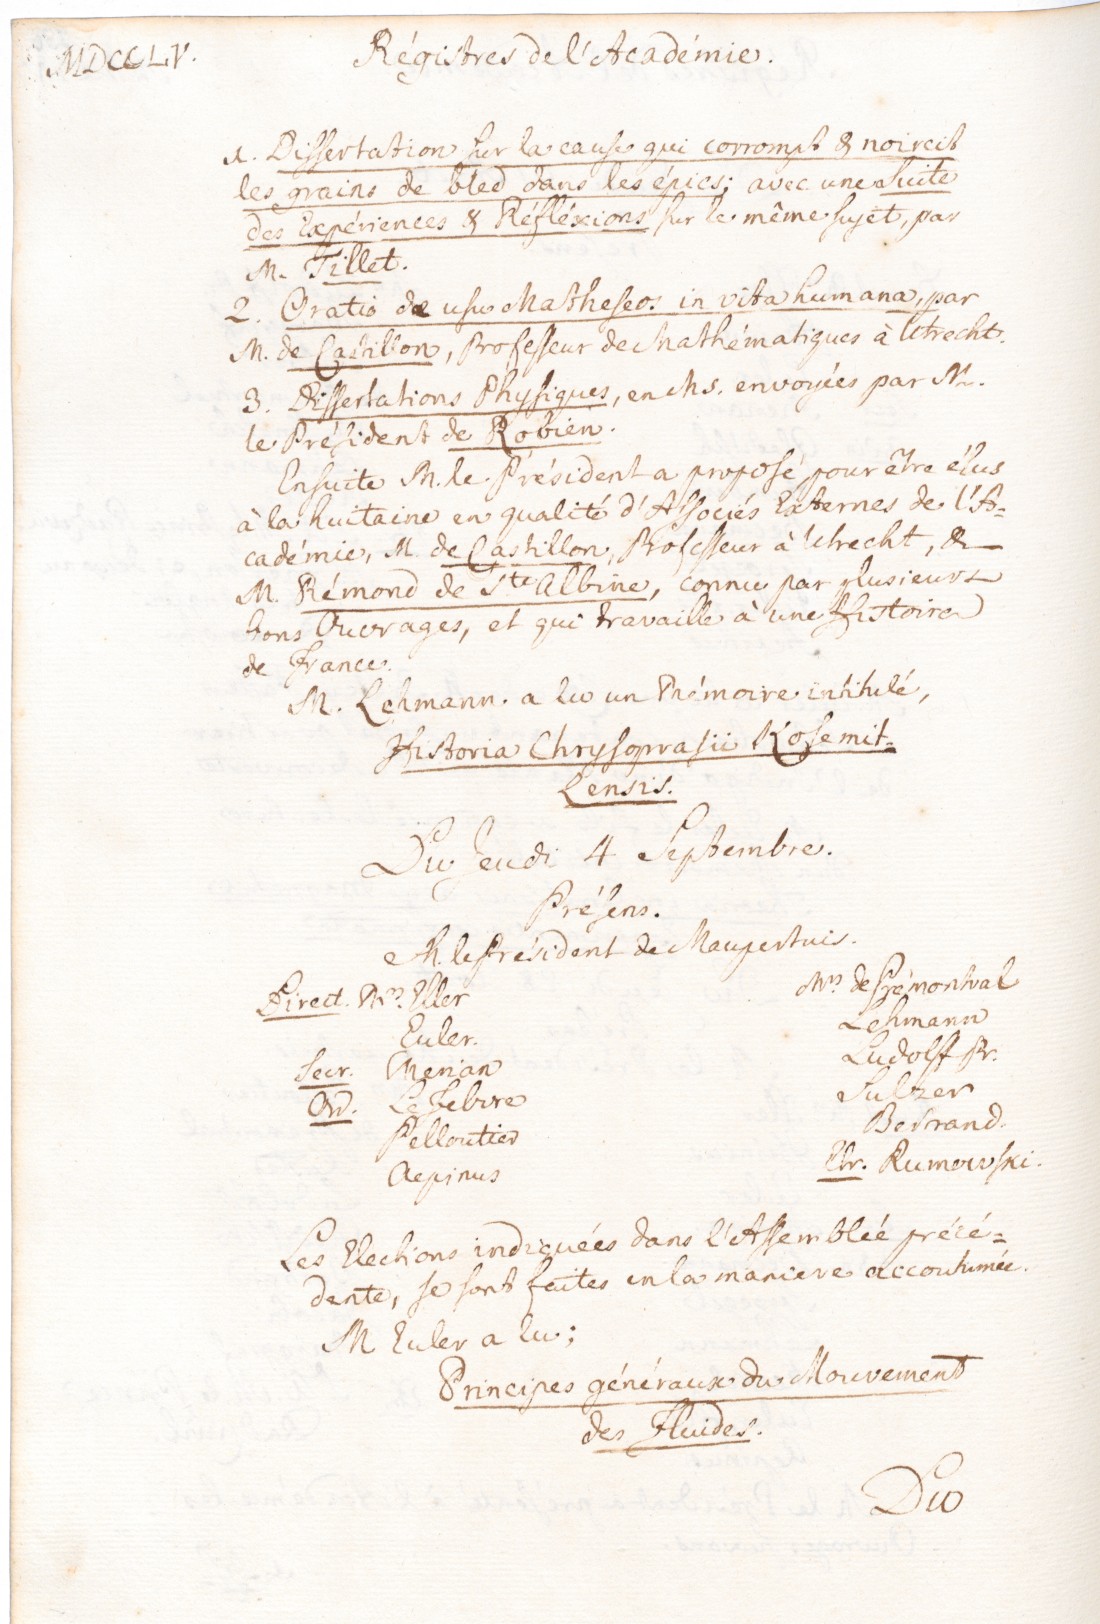 MDCCLV.
Régistres de l'Académie.
1. Dissertation sur la cause qui corrompt & noircit
les grains de bled dans les épics; avec une Suite
des Expériences & Réfléxions sur le même sujet, par
M. Tillet.
2. Oratio de usu Matheseos in vita humana, par
M. de Castillon, Professeur de Mathématiques à Utrecht.
3. Dissertations Physiques, en Ms. envoyées par Mr.
le Président de Robien.
Ensuite M. le Président a proposé pour être élus
à la huitaine en qualité d'Associés Externes de l'A=
cadémie, M. de Castillon, Professeur à Utrecht, &
M. Rémond de Ste Albine, connu par plusieurs
bons Ouvrages, et qui travaille à une Histoire
de France.
M. Lehmann. a lu un Mémoire intitulé,
Historia Chrysoprasii Kosemit=
Lensis.
Du Jeudi 4 Septembre.
Présens.
M. le Président de Maupertuis.
Direct. Mrs. Eller
Euler.
Secr. Merian
Ord. Le Febvre
Pelloutier
Aepinus
Mrs de Prémontval
Lehmann
Ludolff Pr.
Sulzer
Bertrand.
Etr. Rumowski.
Les Elections indiquées dans l'Assemblée précé=
dente, se sont faites en la maniere accoutumée.
M Euler a lu;
Principes généraux du Mouvement
des Fluides.
Du